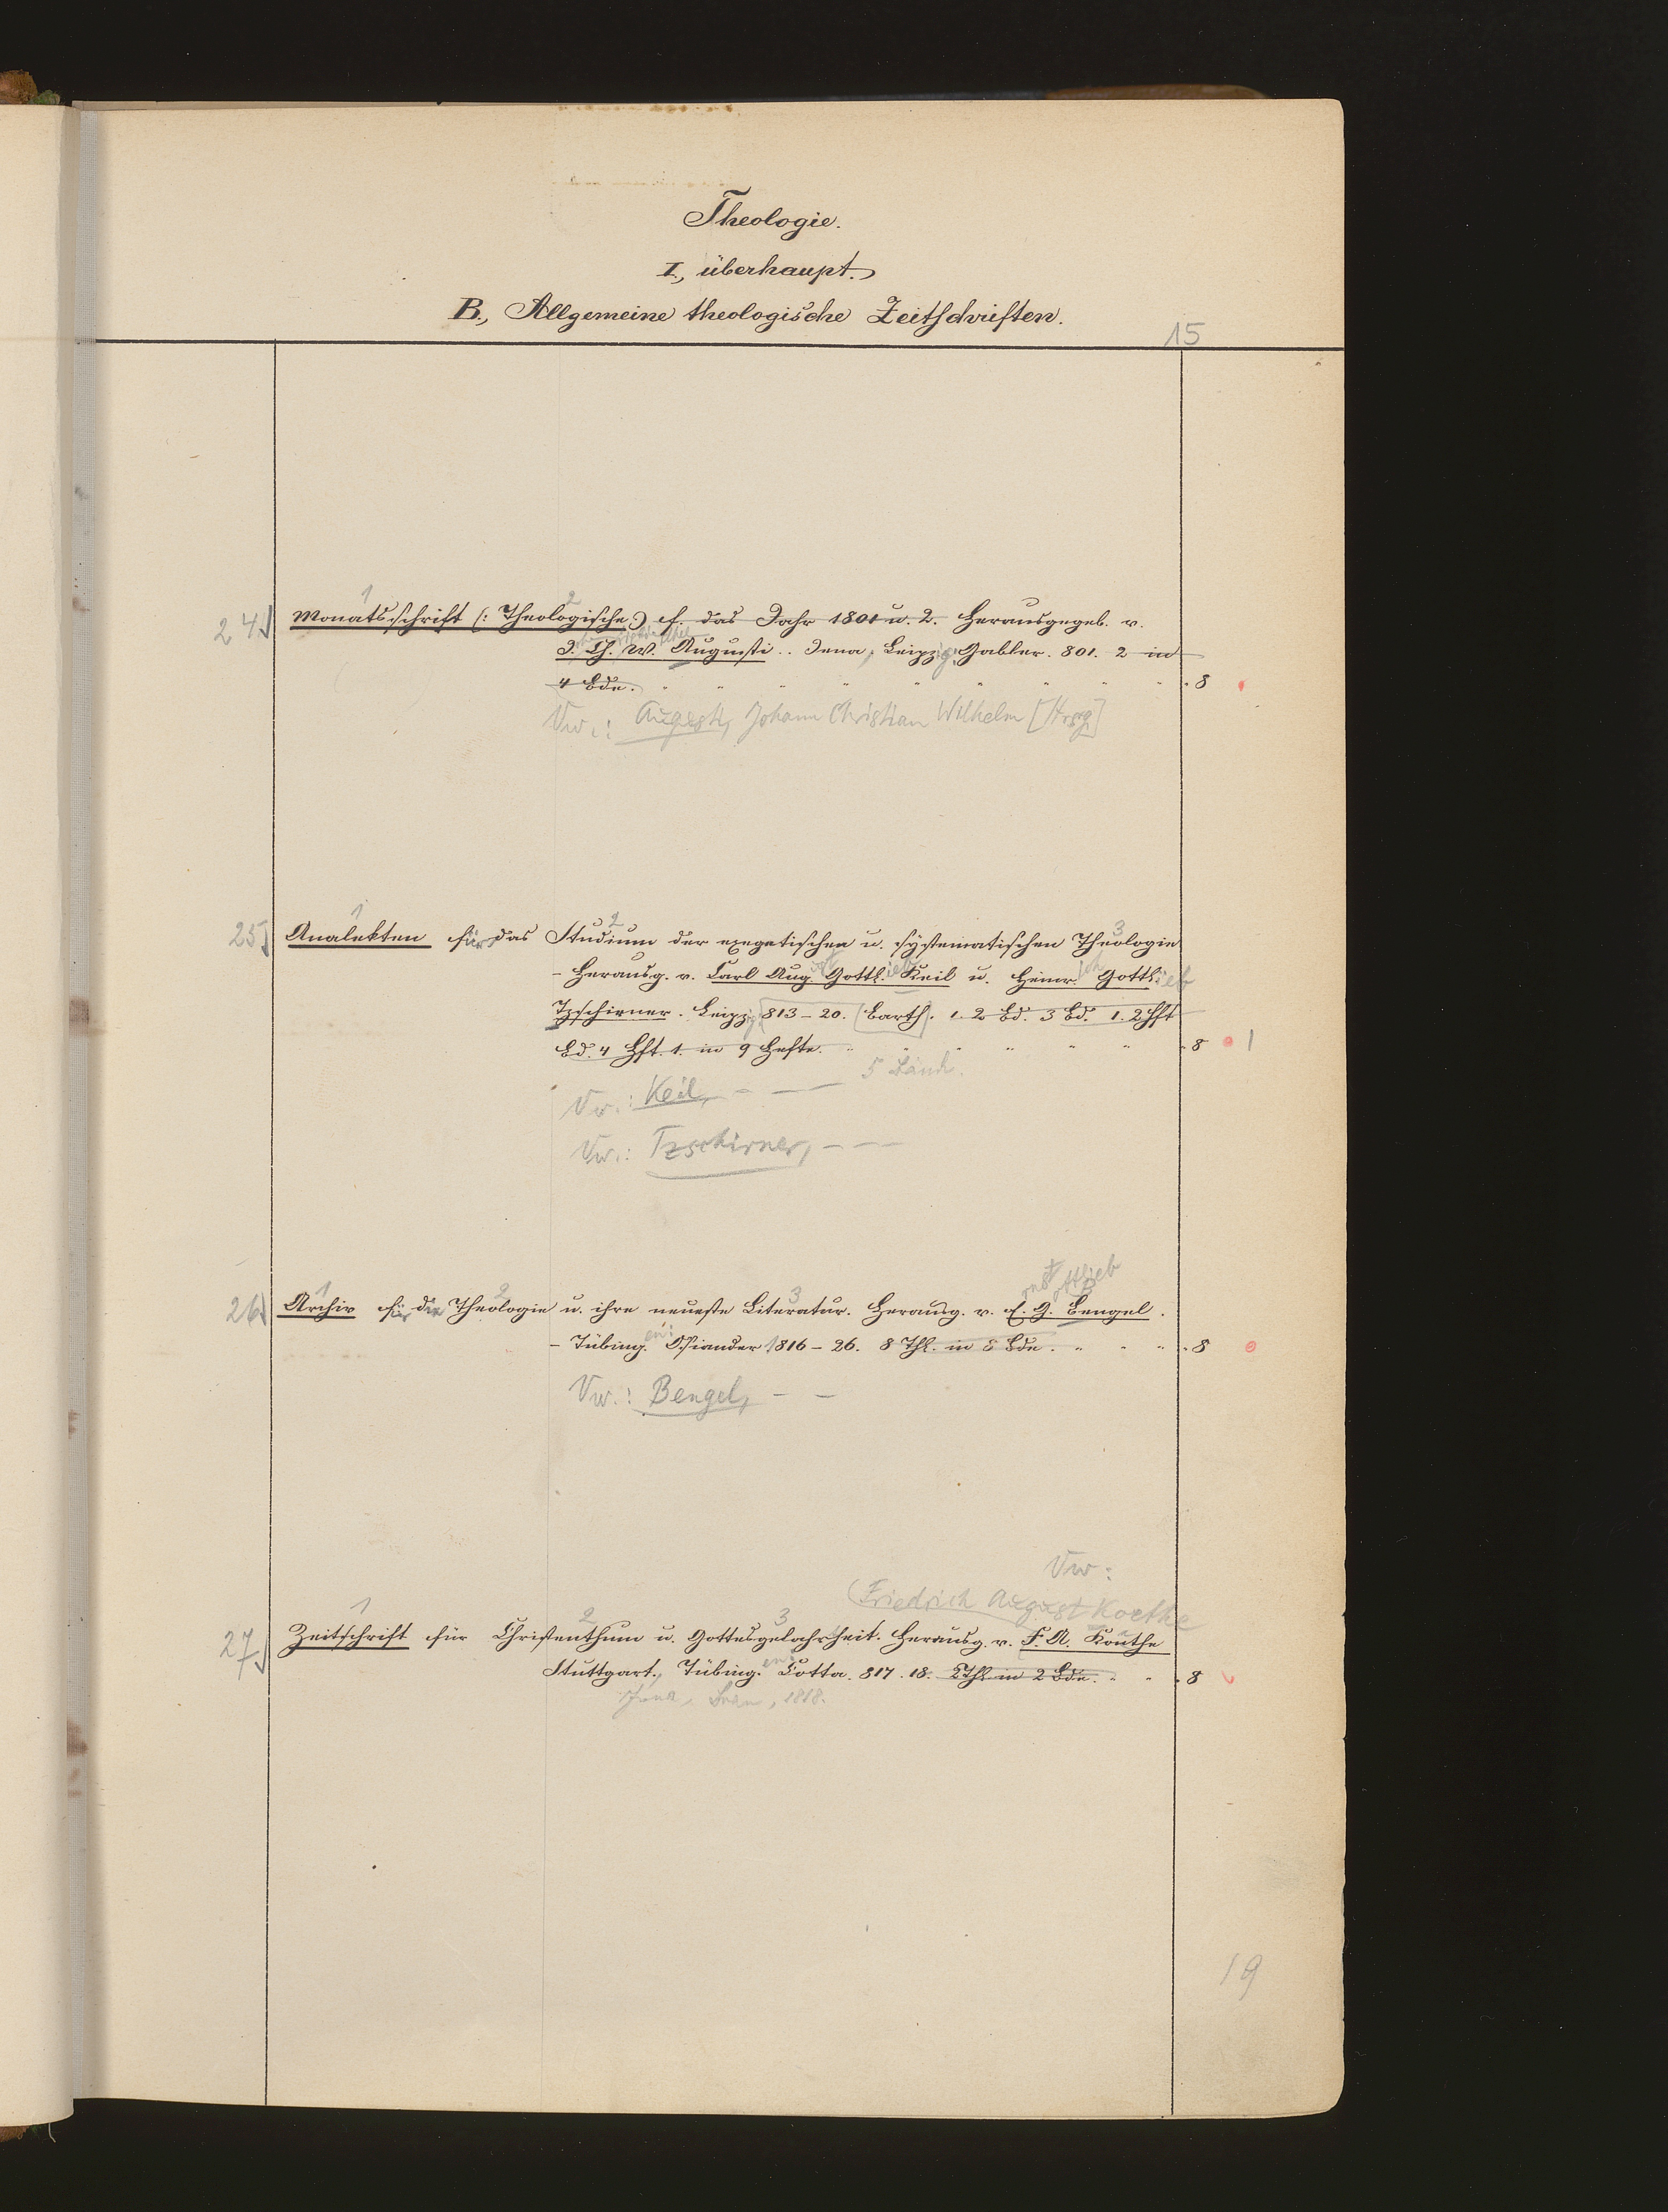 Theologie.
I., überhaupt.
B., Allgemeine theologische Zeitschriften.
15
1 2
24 Monatsschrift (: Theologische :) f. das Jahr 1801 u. 2. Herausgegeb. v.
J. Ch. W. Augusti.. Jena, Leipzig, Gabler. 801. 2 in
4 Bde. " " " " " " " " " 8
Vw.: Augusti, Johann Christian Wilhelm [Hrsg.]
1 2 3
25 Analekten für das Studium der exegetischen u. systematischen Theologie
- Herausg. v. Carl August Gottlieb Keil u. Heinr. Gottlieb
Tzschirner. Leipzig 813-20. (Barth). 1. 2 Bd. 3 Bd. 1. 2 Hft
Bd. 4 Hft. 1. in 9 Hefte. " " " " " " 8 1
5 Bände.
Vw.: Keil, - —
Vw.: Tzschirner, - —
ernst ottlieb
1 2 3
26 Archiv für die Theologie u. ihre neueste Literatur. Herausg. v. E. G. Bengel.
- Tübingen: Osiander 1816-26. 8 Thl. in 8 Bde. " " " 8
Vw.: Bengel, - -
Vw:
(Friedrich August Koethe
1 2 3
27 Zeitschrift für Christenthum u. Gottesgelahrtheit. Herausg. v. F. A. Koethe
Stuttgart., Tübingen Cotta. 817. 18. 2 Thl. in 2 Bde. " " 8
Jena, 1818.
19